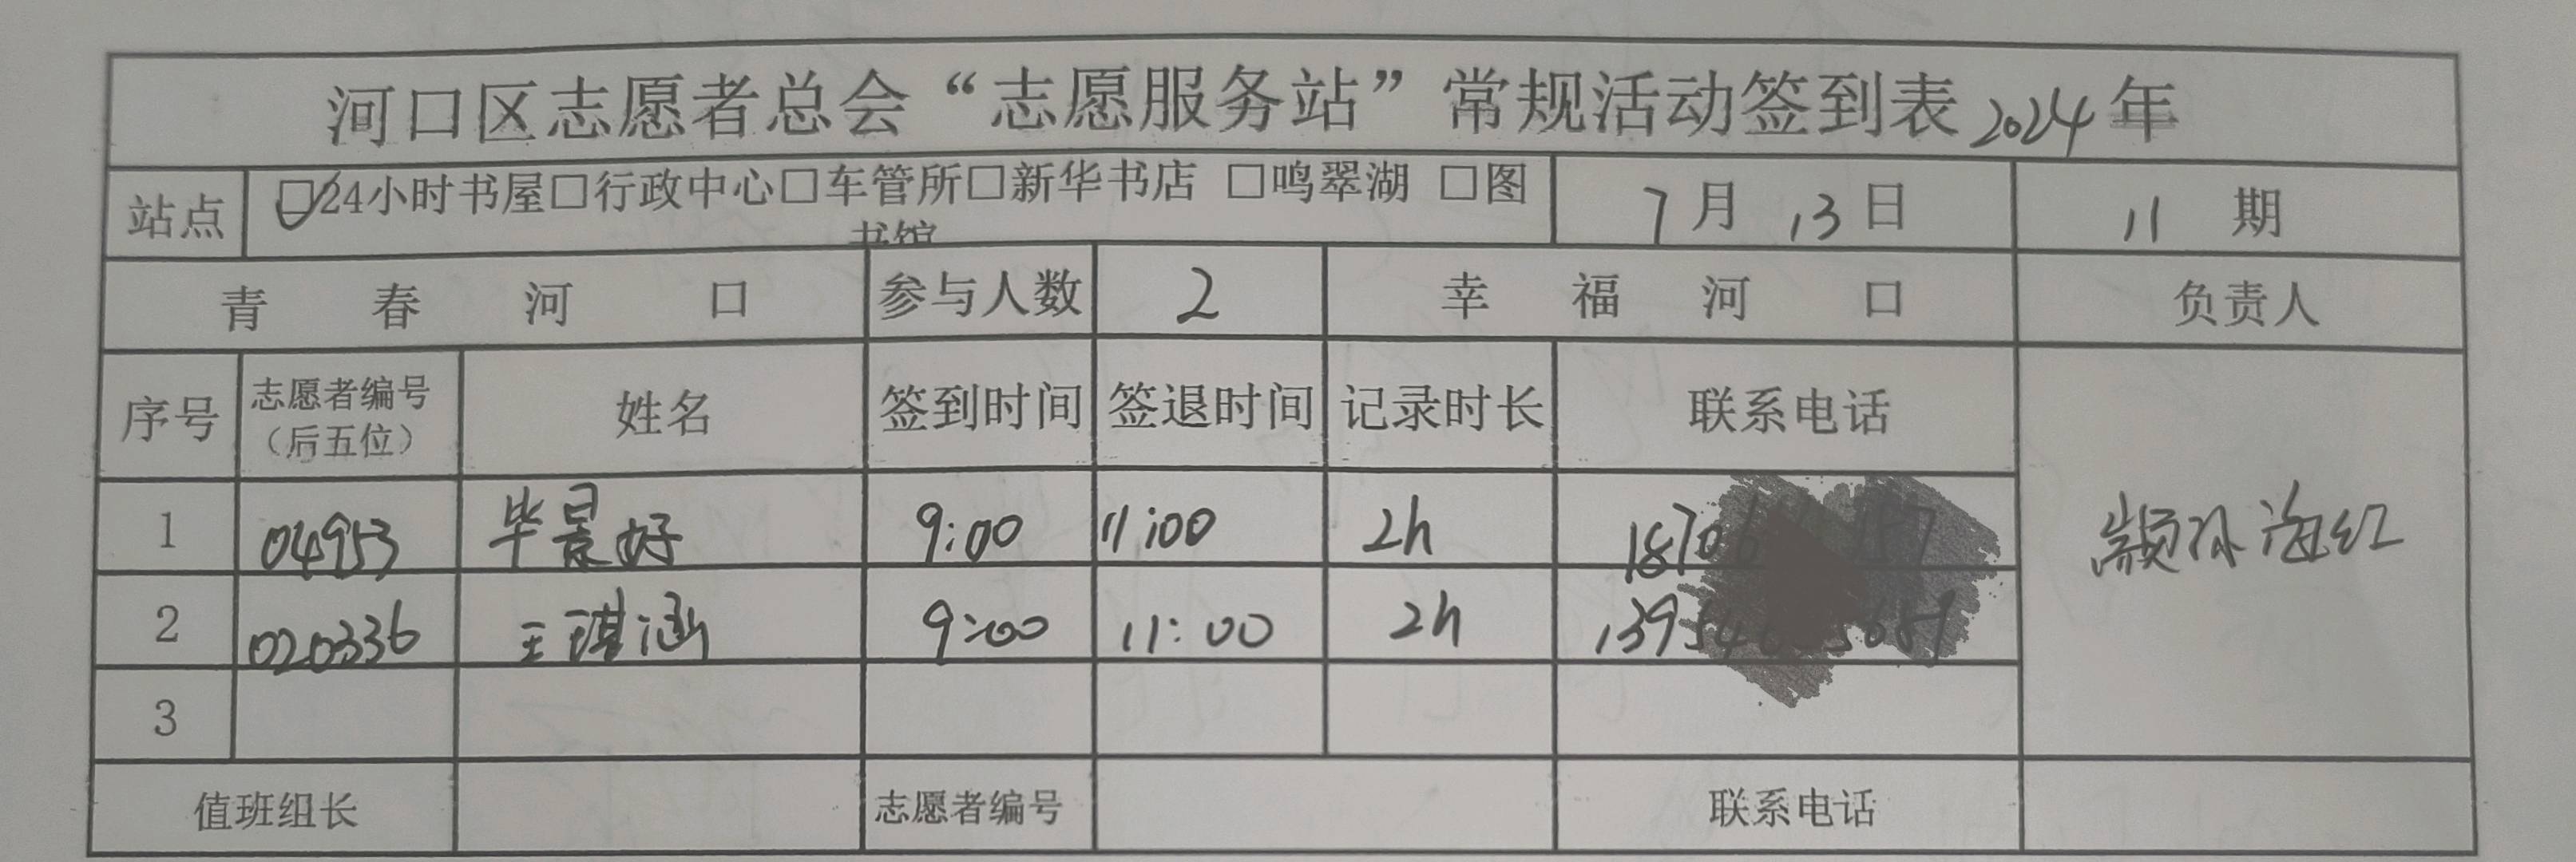 河口区志愿者总会“志愿服务站”常规活动签到表 2024 年
站点 ☑24小时书屋□行政中心□车管所□新华书店 □鸣翠湖 □图 7 月 13 日 11 期
书馆
青春河口 参与人数 2 幸福河口 负责人
序号 志愿者编号 姓名 签到时间 签退时间 记录时长 联系电话
（后五位）
1 04953 毕景好 9:00 11:00 2h 颛孙海红
2 020336 王琪涵 9:00 11:00 2h
3
值班组长 志愿者编号 联系电话